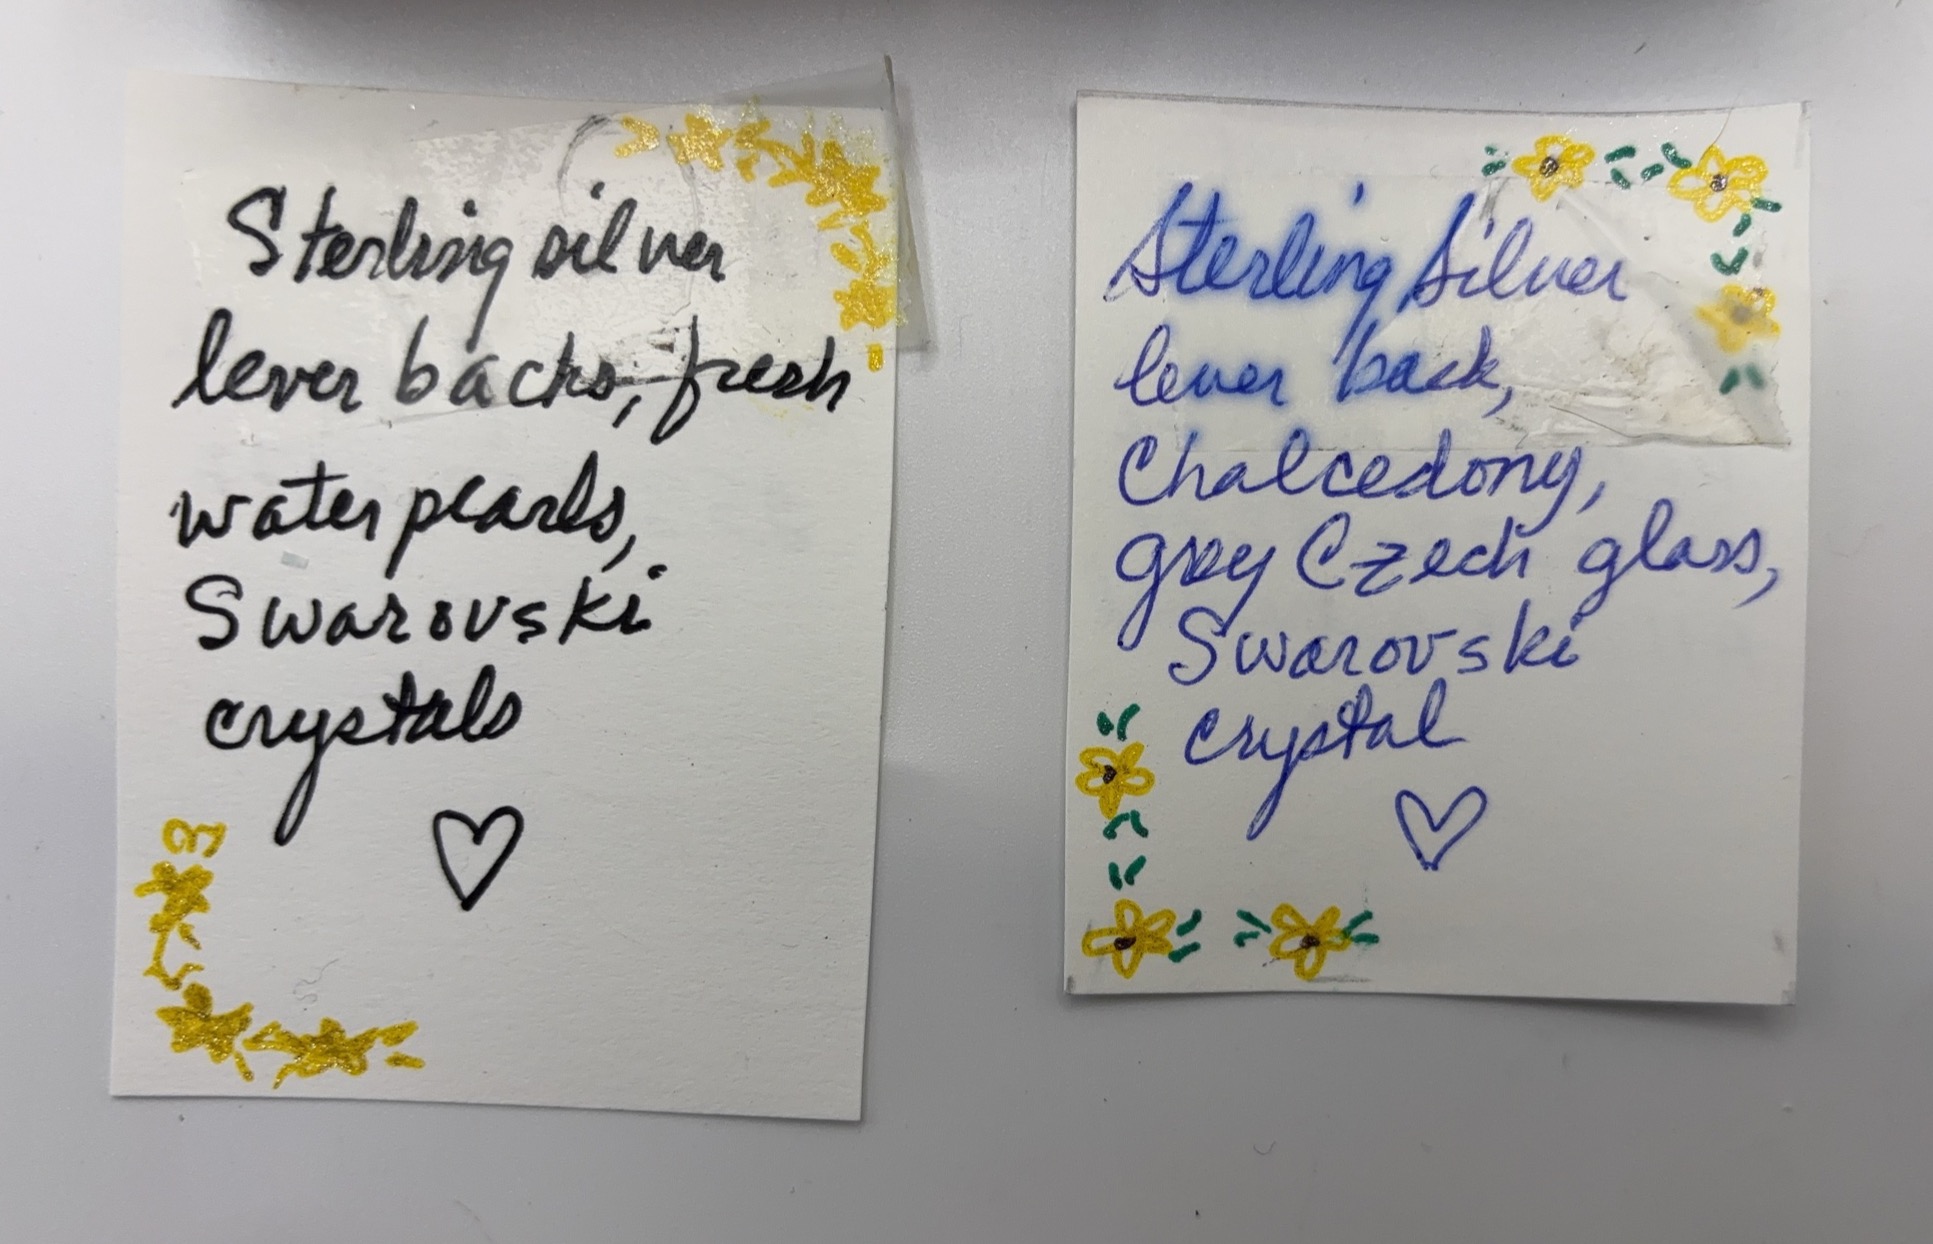 Sterling silver
lever backs, fresh
water pearls,
Swarovski
crystals
Sterling Silver
lever back,
Chalcedony,
grey Czech glass,
Swarovski
crystal